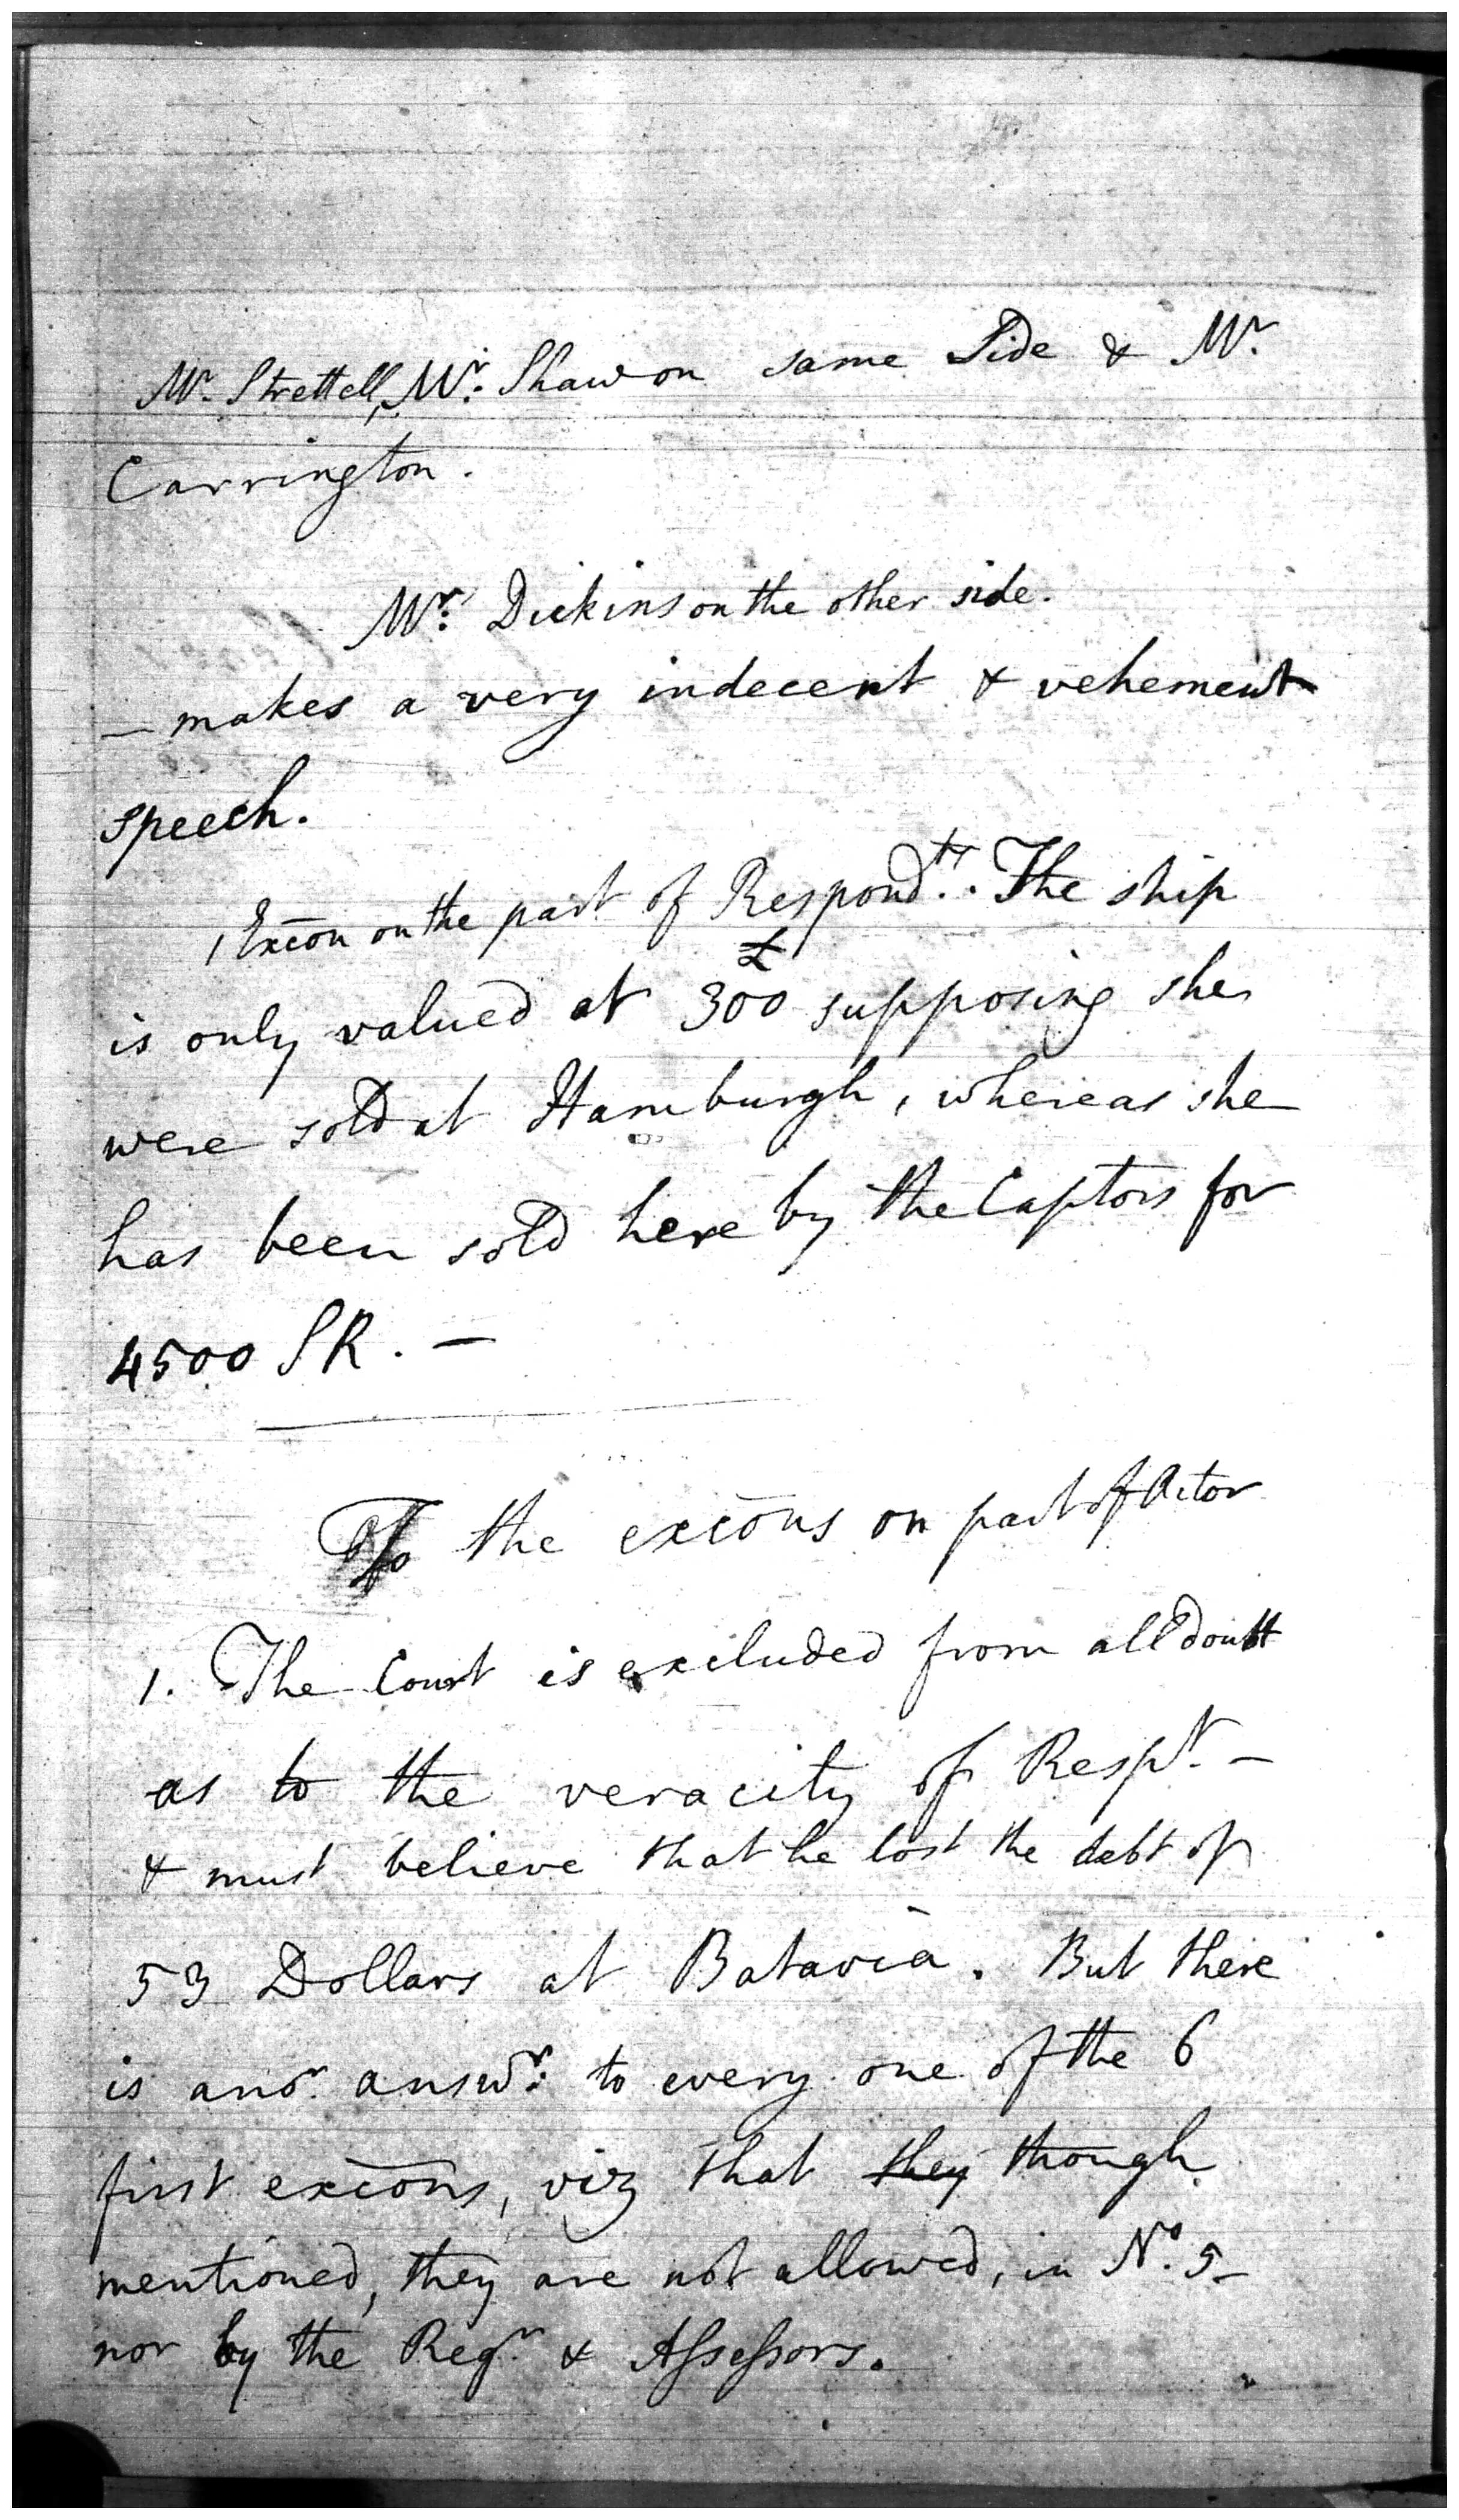 Mr. Strettell, Mr. Shaw on same Side & Mr.
Carrington.
Mr. Dickins on the other side.
— makes a very indecent & vehement
speech.
1 Excōn on the part of Respondts. The ship
is only valued at £300 supposing she
were sold at Hamburgh, whereas she
has been sold here by the Captors for
4500 SR. —
To the excōns on part of Actor
1. The Court is excluded from all doubt
as to the veracity of Respt. —
& must believe that he lost the debt of
53 Dollars at Batavia. But there
is anor. answr. to every one of the 6
first excōns, viz that they though
mentioned, they are not allowed, in No. 5 —
nor by the Regr. & Assessors.